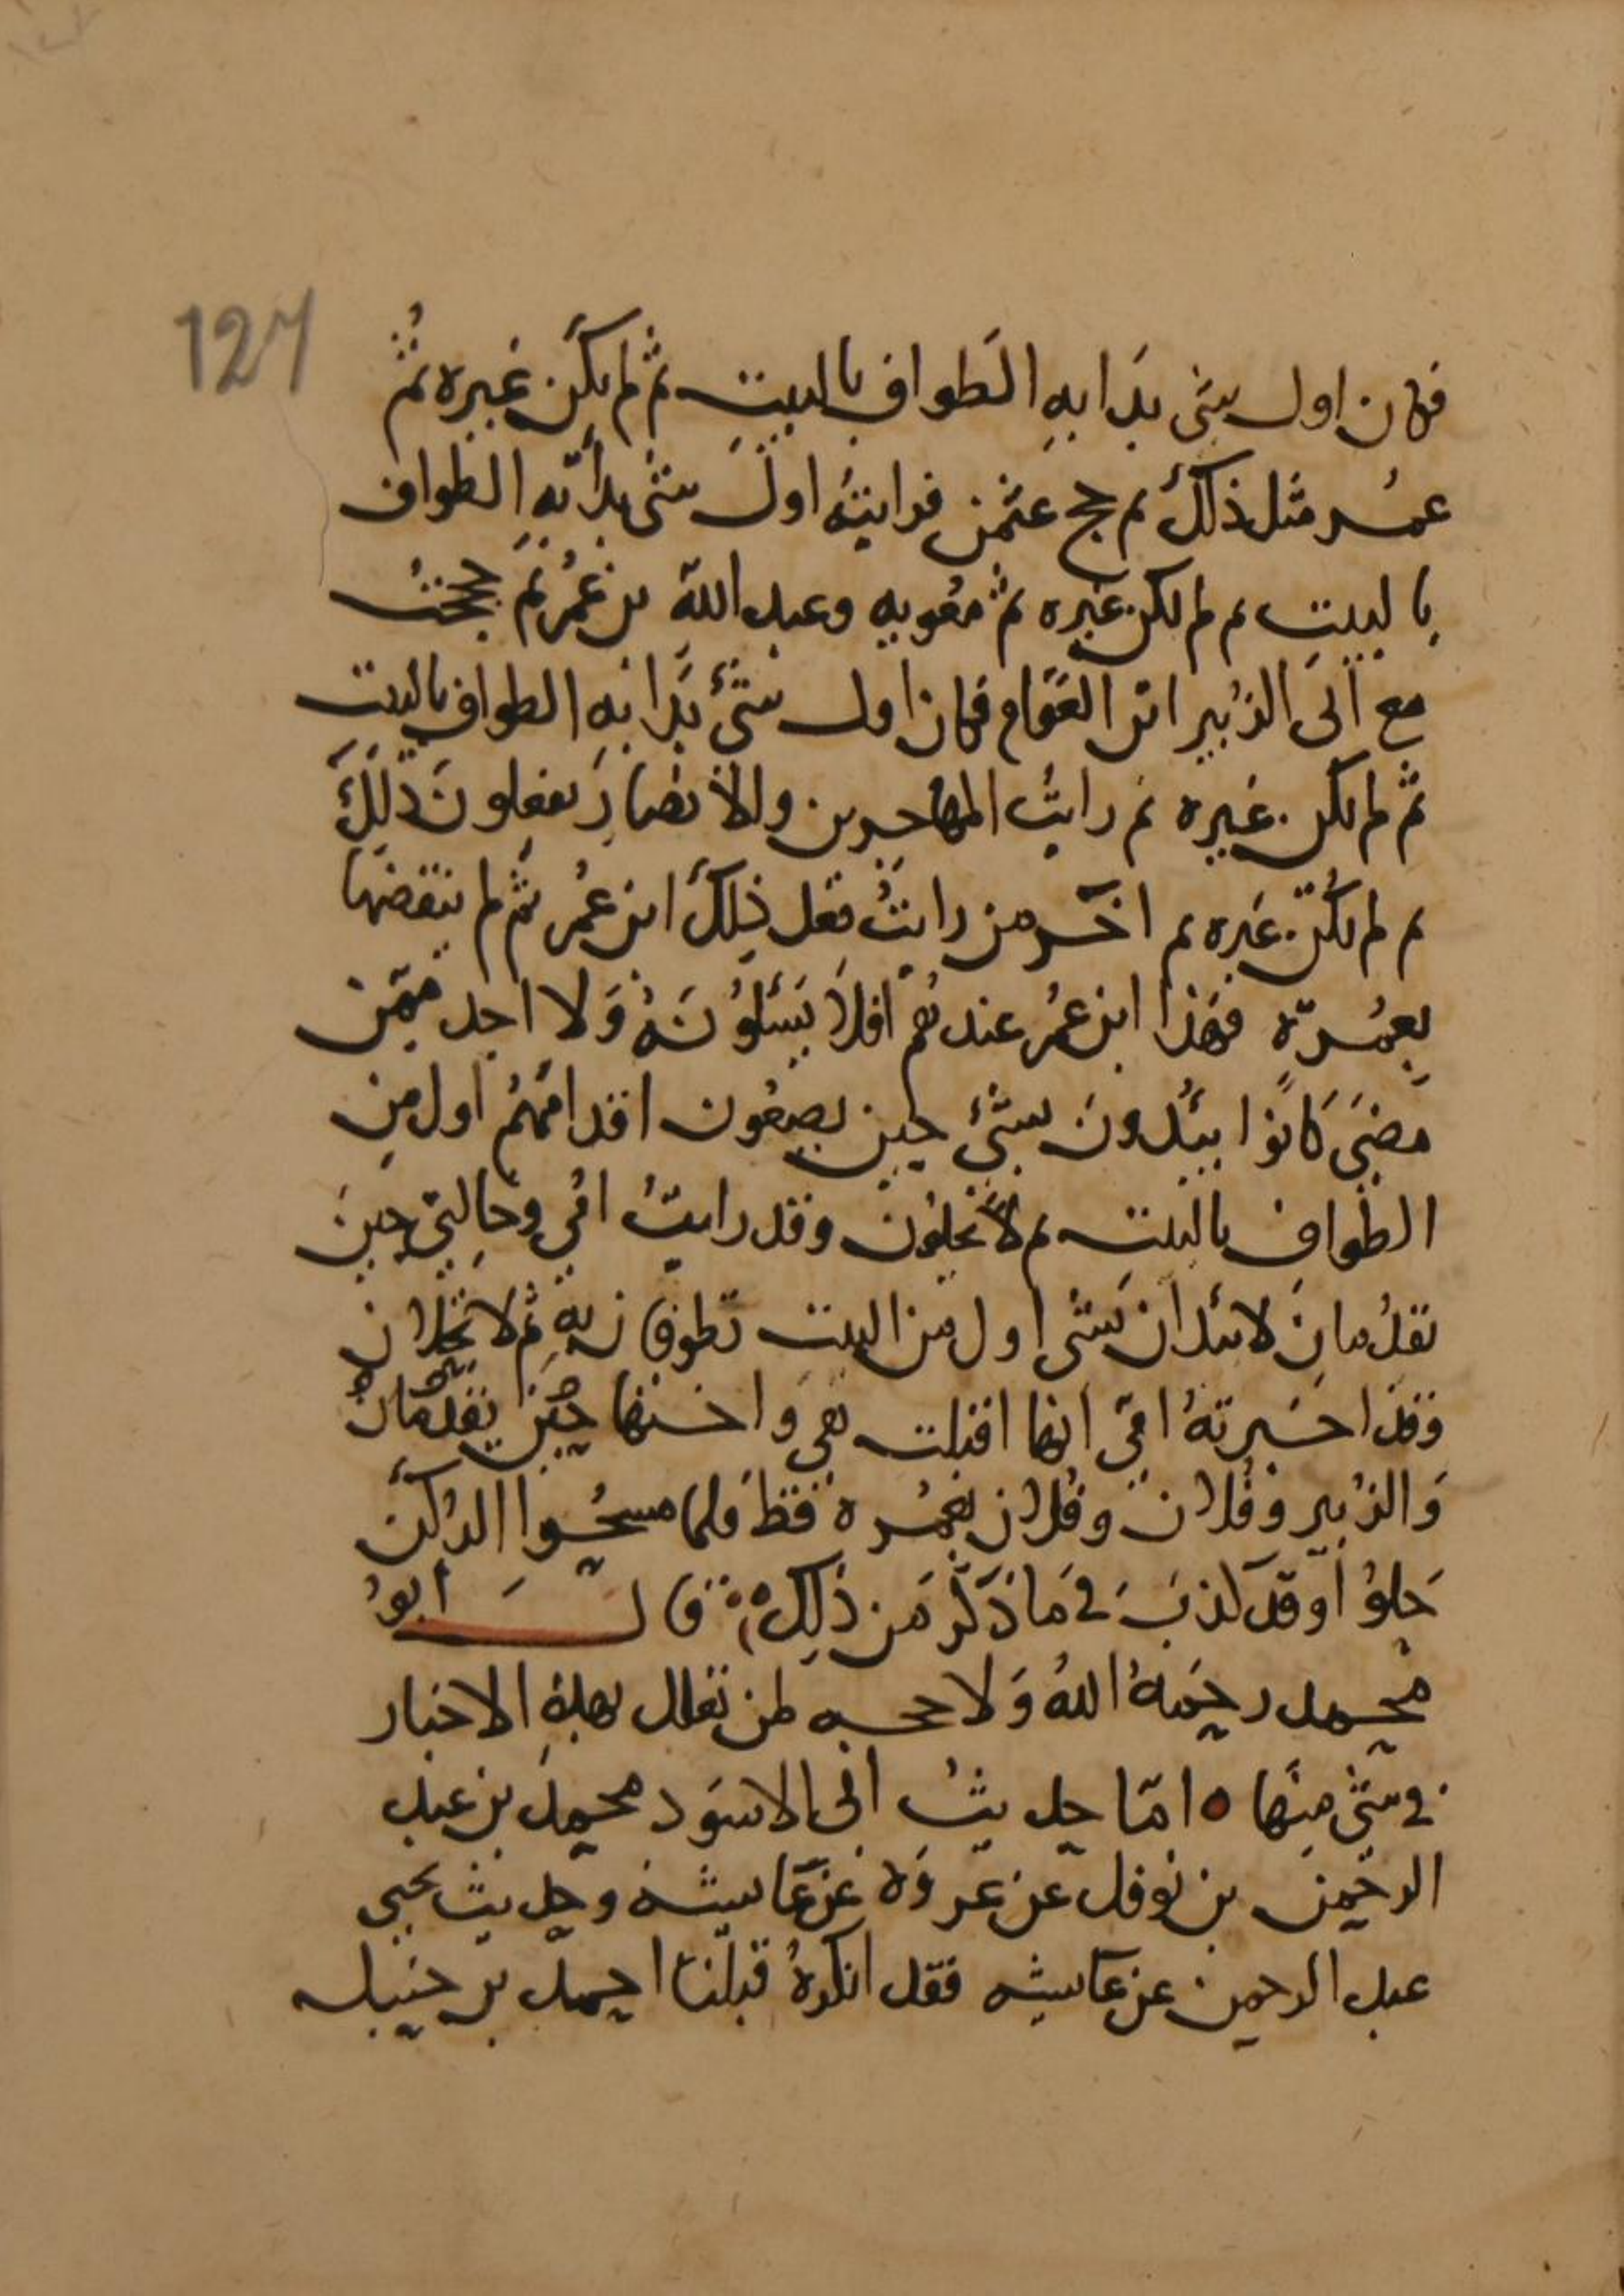 127
فكان اول شئ بدا به الطواف بالبيت ثم لم يكن غيره ثم
عمر مثل ذلك ثم حج عثمن فرايته اول شئ بدأ به الطواف
بالبيت ثم لم يكن غيره ثم معويه وعبد الله بن عمر ثم حججت
مع ابى الزبير ابن العوام فكان اول شئ بدا به الطواف بالبيت
ثم لم يكن غيره ثم رايت المهاجرين والانصار يفعلون ذلك
ثم لم يكن غيره ثم اخر من رايت فعل ذلك ابن عمر ثم لم ينقضها
بعمرة فهذا ابن عمر عندهم افلا يسئلونه ولا احد ممن
مضى كانوا يبدون بشئ حين يضعون اقدامهم اول من
الطواف بالبيت ثم لا يحلون وقد رايت امي وخالتي حين
تقدمان لا تبدان بشئ اول من البيت تطوفان به ثم لا تحلان
وقد اخبرته امي انها اقبلت هي واختها حين يقدمان
والزبير وفلان وفلان بعمرة فقط فلما مسحوا الركن
حلوا وقد كذب في ما ذكر من ذلك قال ابو
محمد رحمه الله ولا حجه لمن تعلل بهذه الاخبار
في شئ منها ه اما حديث ابى الاسود محمد بن عبد
الرحمن بن نوفل عن عروة عن عايشه وحديث يحيى
عبد الرحمن عن عايشه فقد انكره قبلنا احمد بن حنبل